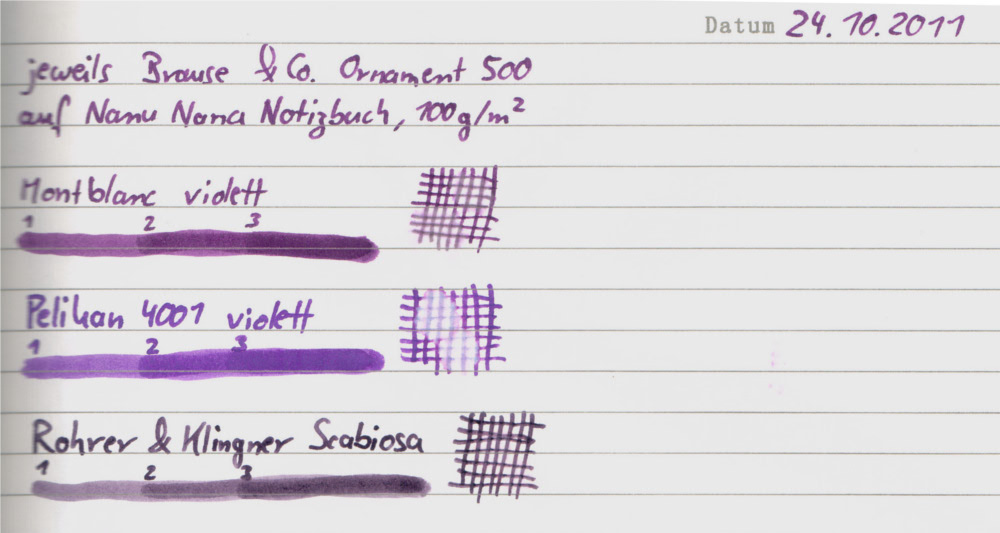 Datum 24.10.2011
jeweils Brause & Co. Ornament 500
auf Nanu Nana Notizbuch, 100g/m²
Montblanc violett
1 2 3
Pelikan 4001 violett
1 2 3
Rohrer & Klingner Scabiosa
1 2 3